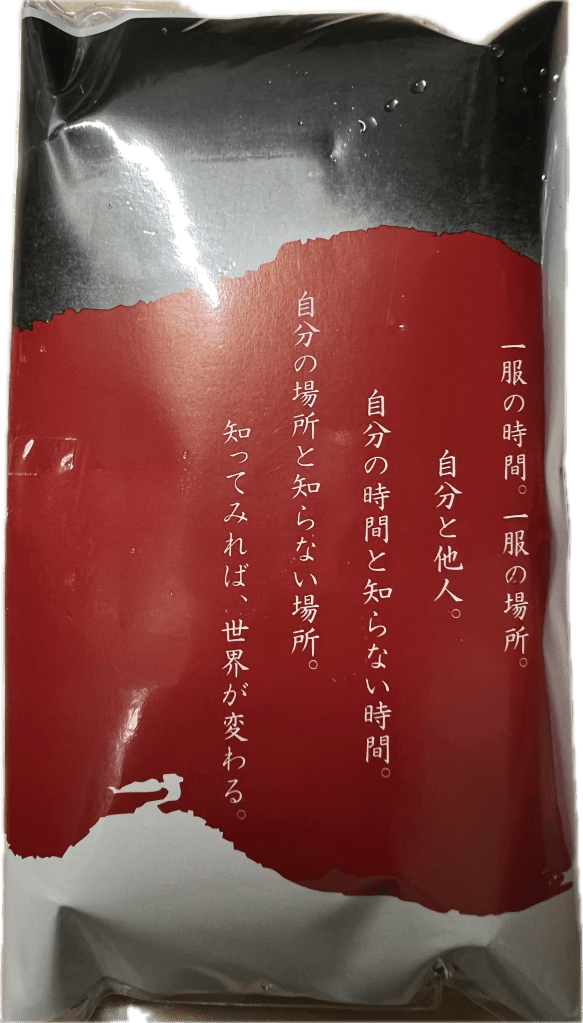 一服の時間。一服の場所。
自分と他人。
自分の時間と知らない時間。
自分の場所と知らない場所。
知ってみれば、世界が変わる。